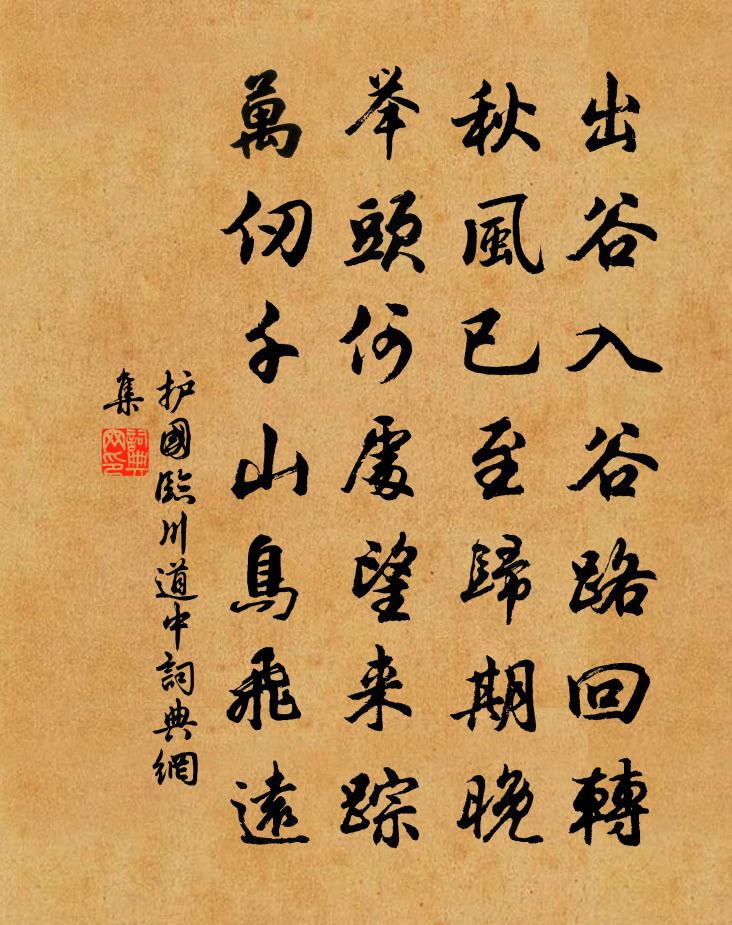 出谷入谷路回轉
秋風已至歸期晚
举頭何處望来踪
萬仞千山鳥飛遠
护國臨川道中詞典網
集
詞典
网印